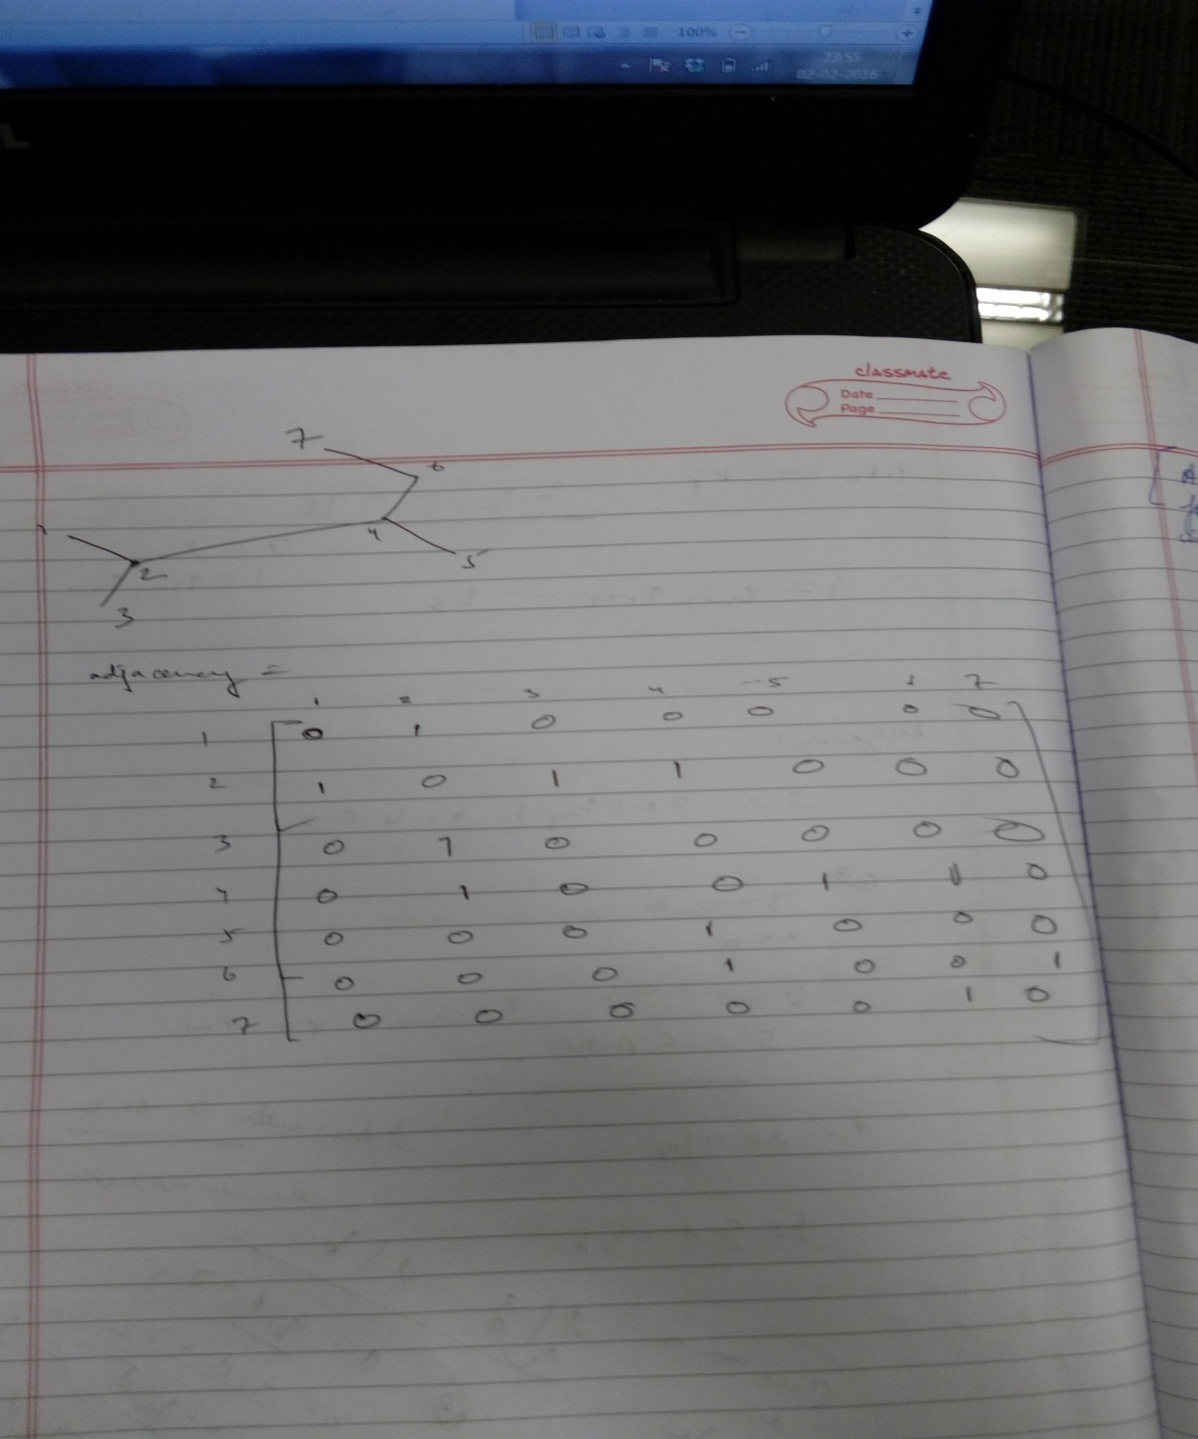 100%
23:55
02-02-2016
classmate
Date
Page
7
6
1
4
5
2
3
adjacency =
1 2 3 4 5 6 7
1 0 1 0 0 0 0 0
2 1 0 1 1 0 0 0
3 0 1 0 0 0 0 0
4 0 1 0 0 1 1 0
5 0 0 0 1 0 0 0
6 0 0 0 1 0 0 1
7 0 0 0 0 0 1 0